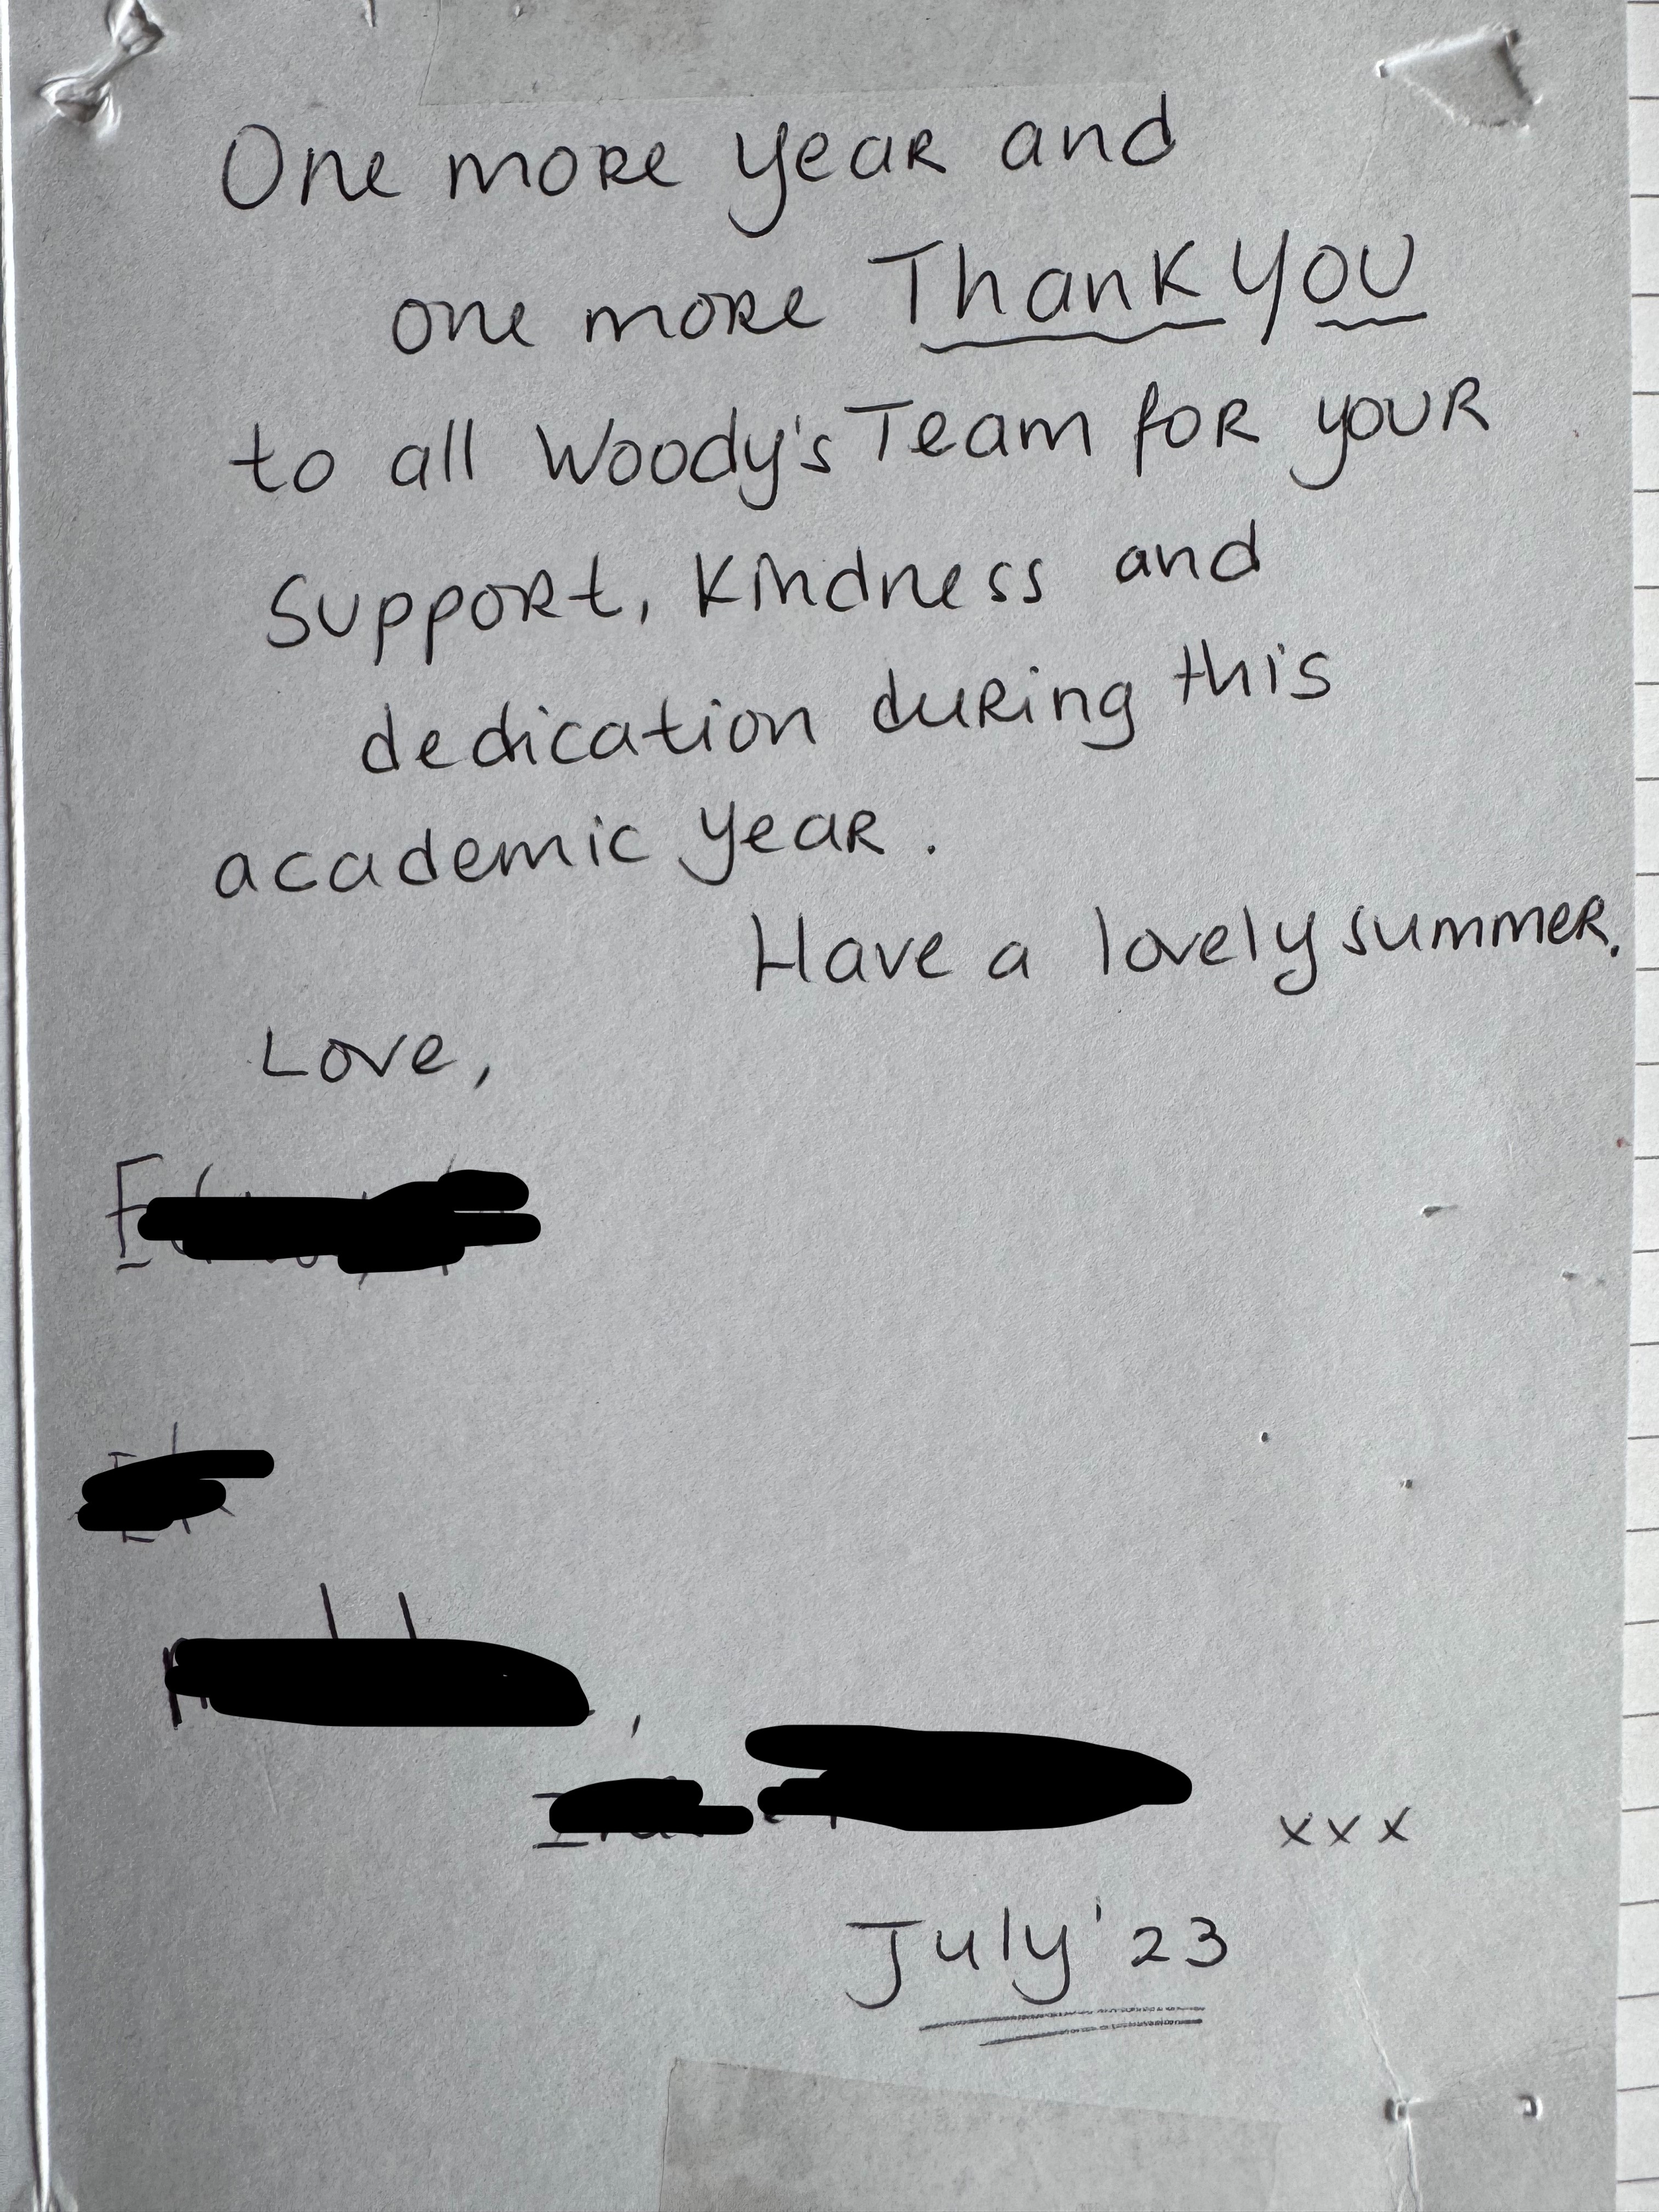 One more year and
one more Thank you
to all Woody's Team for your
Support, Kindness and
dedication during this
academic year.
Have a lovely summer.
Love,
xxx
July '23